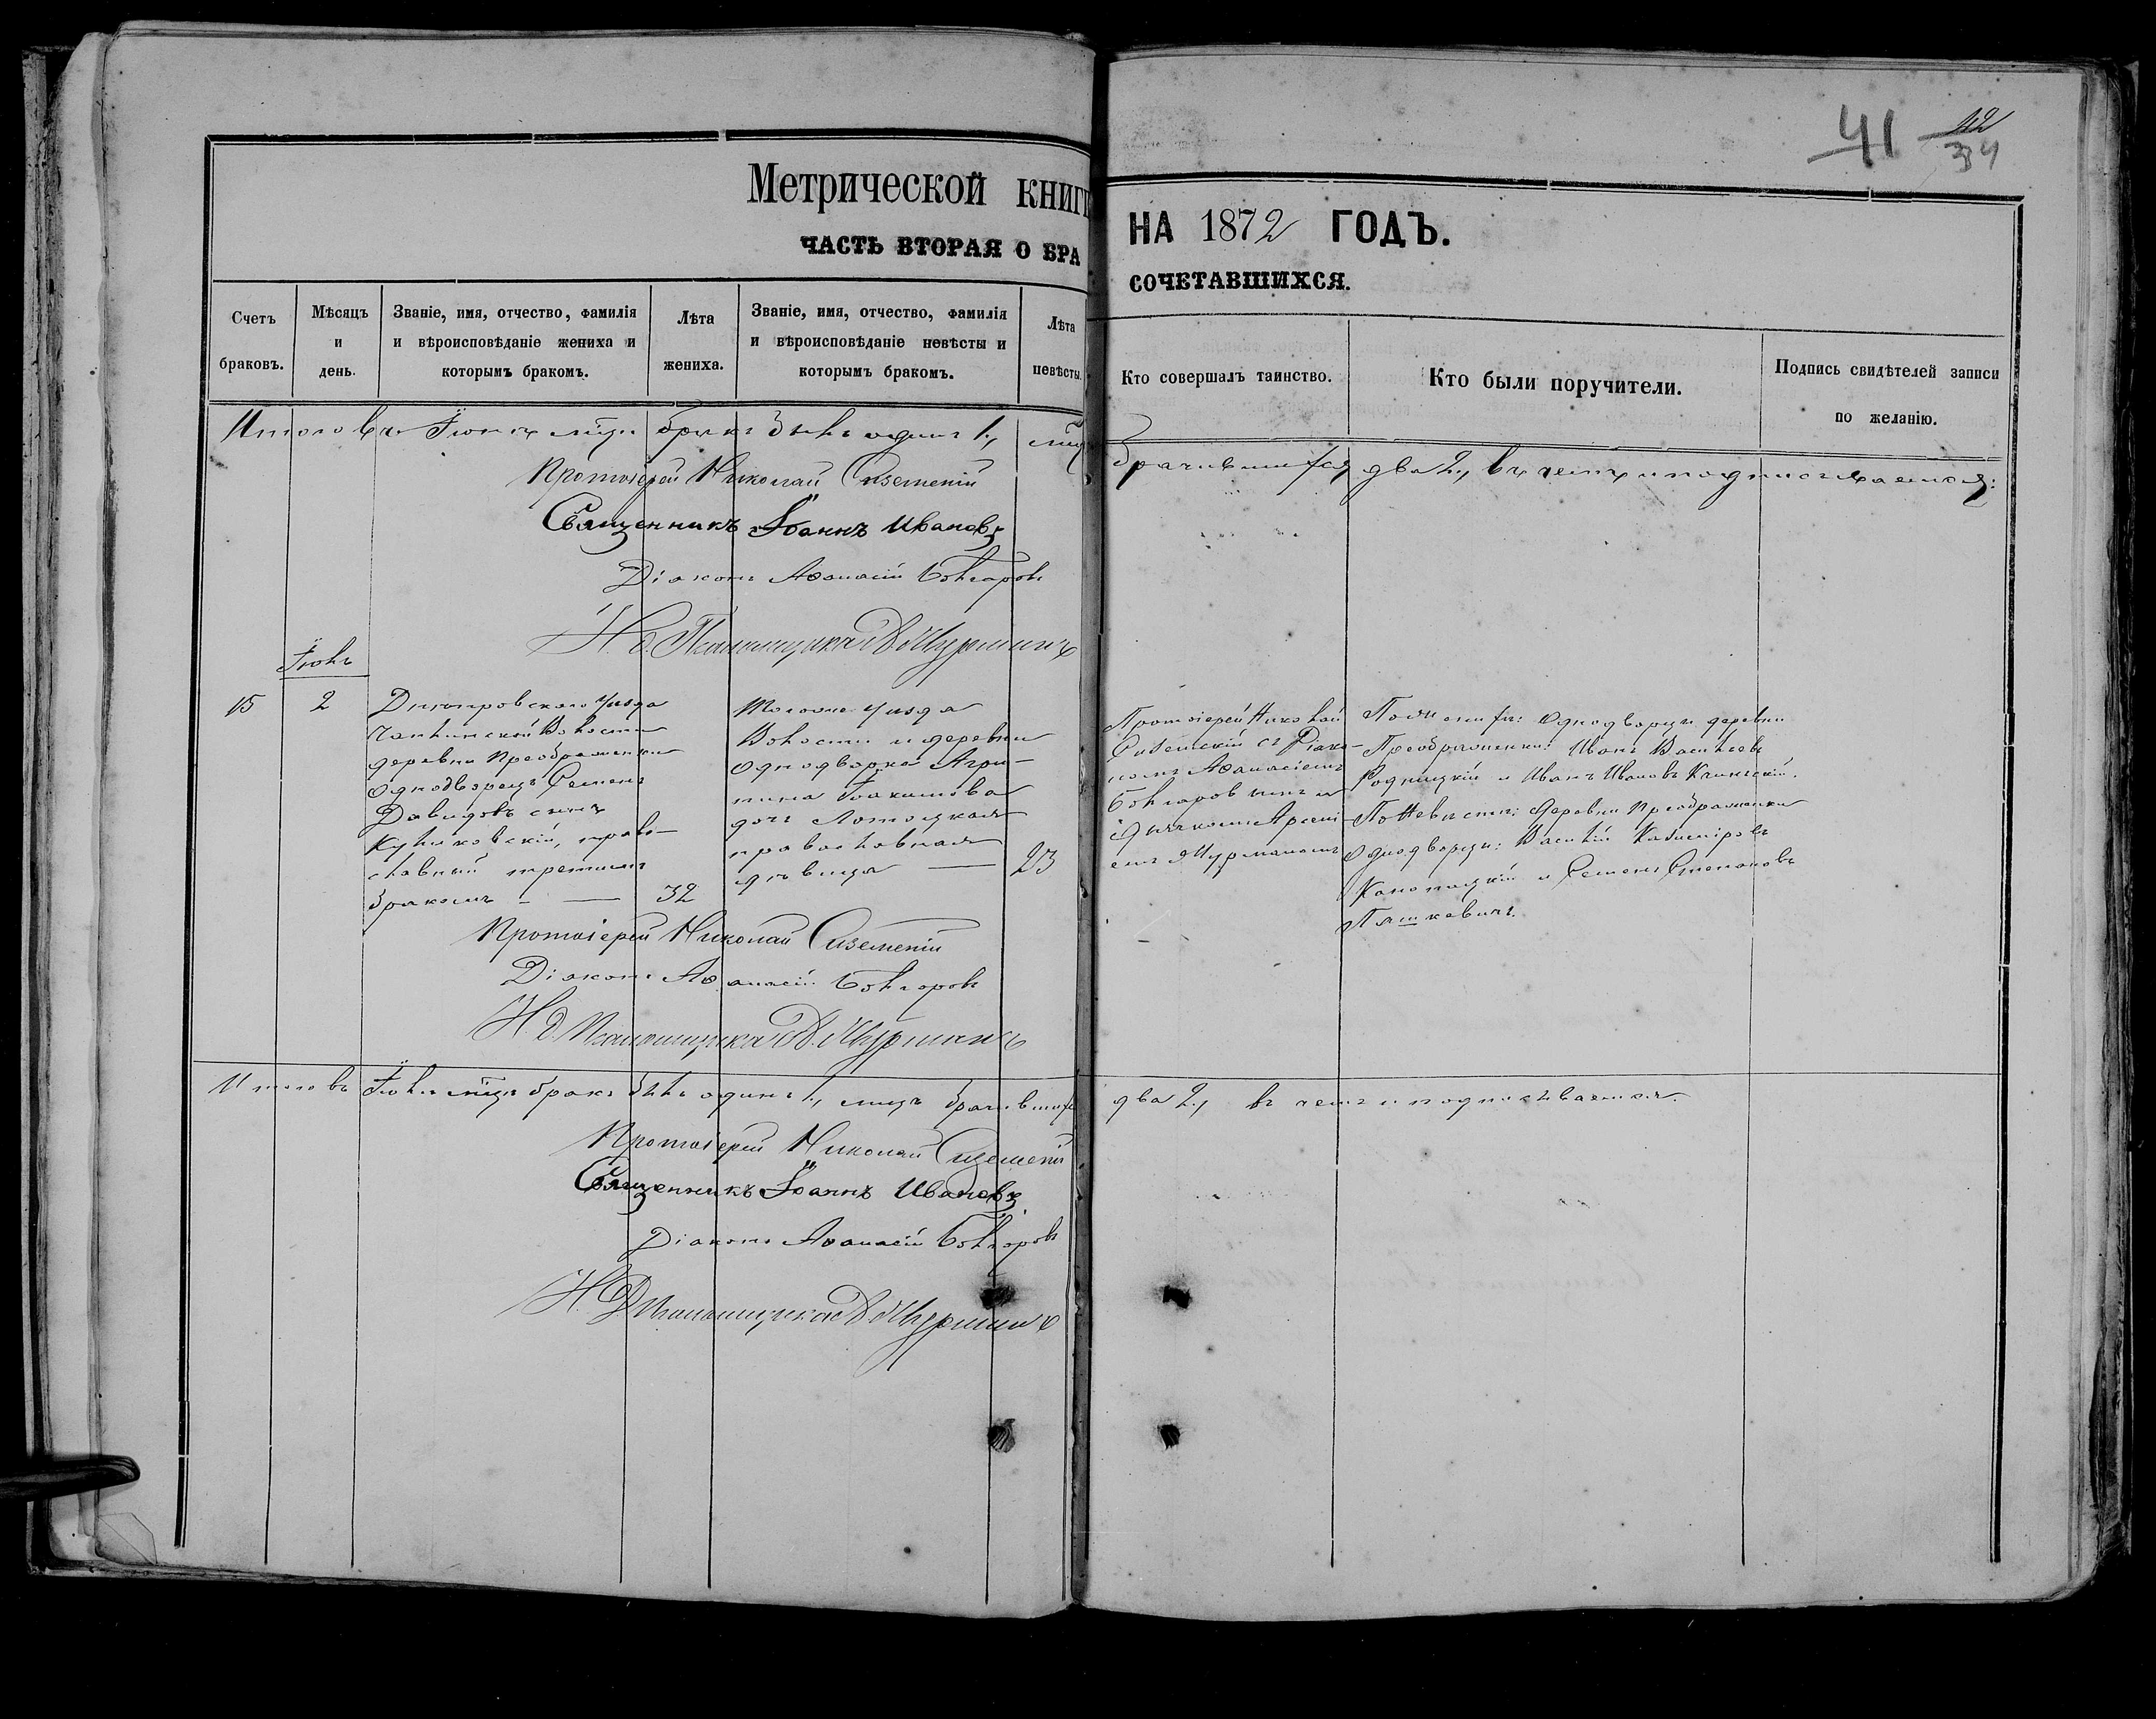 41 42
34
Метрической книги НА 1872 ГОДЪ.
ЧАСТЬ ВТОРАЯ О БРА СОЧЕТАВШИХСЯ.
Счетъ браковъ.
Мѣсяцъ и день.
Званіе, имя, отчество, фамилія и вѣроисповѣданіе жениха и которымъ бракомъ.
Лѣта жениха.
Званіе, имя, отчество, фамилія и вѣроисповѣданіе невѣсты и которымъ бракомъ.
Лѣта невѣсты.
Кто совершалъ таинство.
Кто были поручители.
Подпись свидѣтелей записи по желанію.
Итого въ Іюнѣ м҃цѣ бракъ былъ одинъ 1, лицъ брачившихся два 2, въ чемъ и подписываемся:
Протоіерей Николай
Священникъ Іоаннъ Ивановъ
Діаконъ Аѳанасій Болгаровъ
И. д. Псаломщика А. Мурманъ
Іюль
15
2
Днѣпровскаго уѣзда
Чаплинской Волости
деревни Преображенки
Однодворецъ Семенъ
Давидовъ сынъ
Куликовскій, право-
славный третьимъ
бракомъ
32
Тогоже уѣзда
Волости и деревни
Однодворка Агри-
пина Іоакимова
дочь Лотоцкая
православная
дѣвица
23
Протоіерей Николай
съ Діако-
номъ Аѳанасіемъ
Болгаровымъ и
Дьячкомъ Арсені-
емъ Мурманомъ
По женихѣ: Однодворцы деревни
Преображенки: Иванъ Васильевъ
Родницкій и Иванъ Ивановъ
По Невѣстѣ: Деревни Преображенки
Однодворцы: Василій Казиміровъ
Канопацкій и Семенъ Степановъ
Пашкевичъ.
Протоіерей Николай
Діаконъ Аѳанасій Болгаровъ
И. д. Псаломщика А. Мурманъ
Итого въ Іюлѣ м҃цѣ бракъ былъ одинъ 1, лицъ два 2, въ чемъ и подписываемся.
Протоіерей Николай
Священникъ Іоаннъ Ивановъ
Діаконъ Аѳанасій Болгаровъ
И. Д. Псаломщика А. Мурманъ